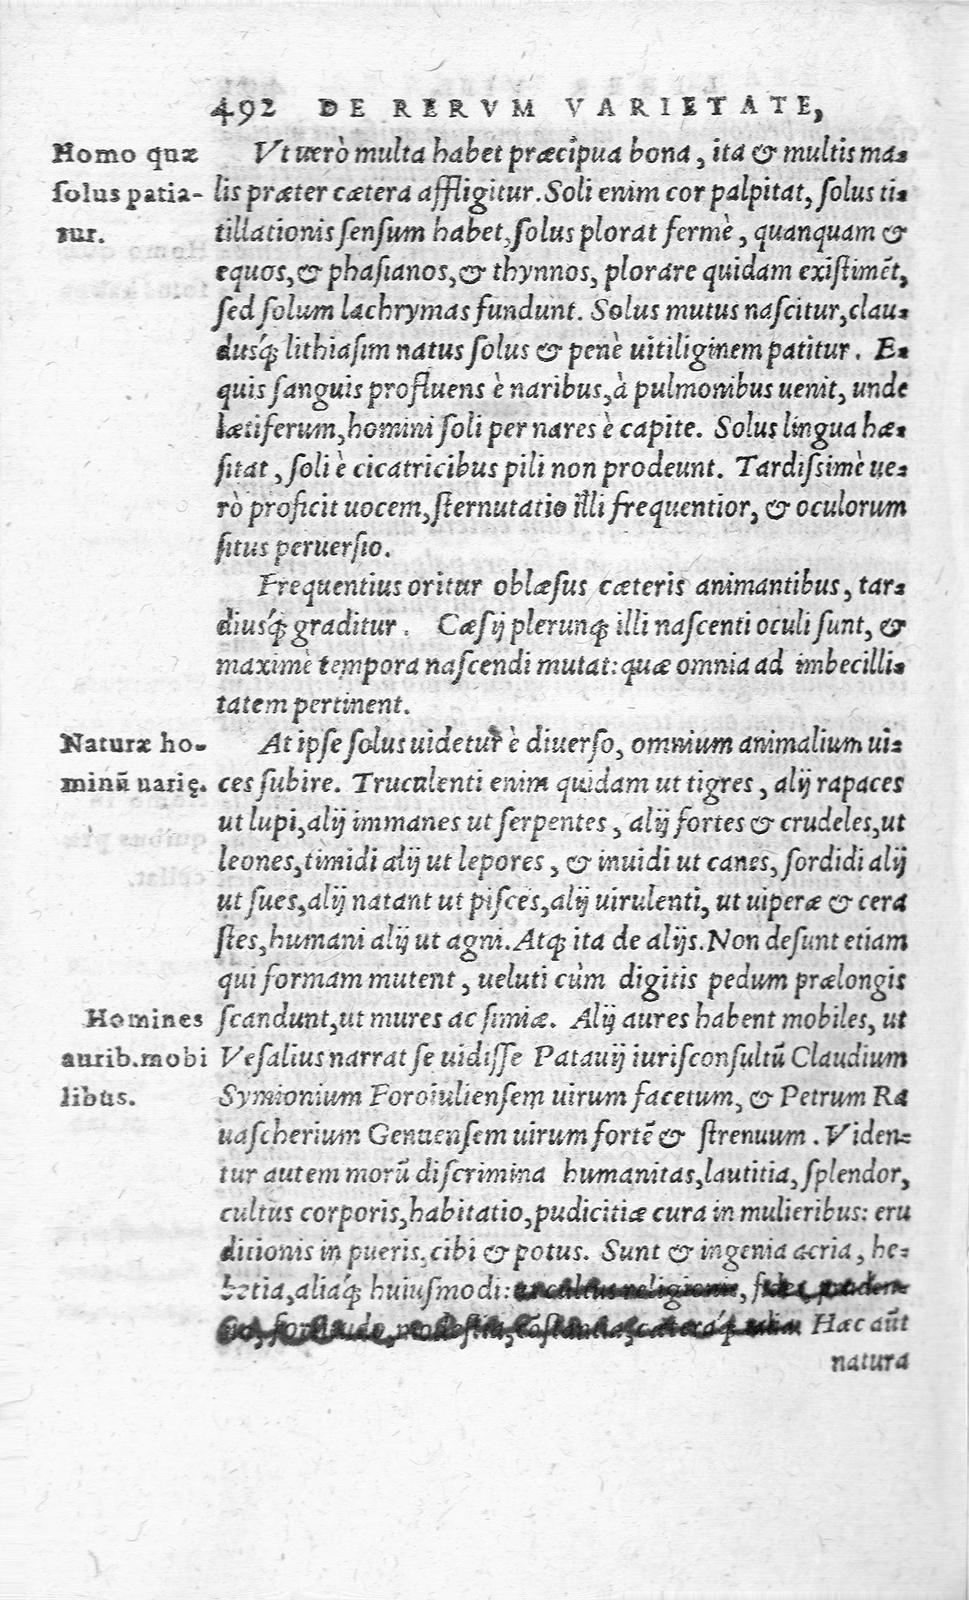 492 DE RERVM VARIETATE,
Homo quæ
solus patia-
tur.
Vt uerò multa habet præcipua bona, ita & multis ma-
lis præter cætera affligitur. Soli enim cor palpitat, solus ti-
tillationis sensum habet, solus plorat fermè, quanquam &
equos, & phasianos, & thynnos, plorare quidam existimẽt,
sed solum lachrymas fundunt. Solus mutus nascitur, clau-
dusq́; lithiasim natus solus & penè uitiliginem patitur. E-
quis sanguis profluens è naribus, à pulmonibus uenit, unde
lætiferum, homini soli per nares è capite. Solus lingua hæ-
sitat, soli è cicatricibus pili non prodeunt. Tardissimè ue-
rò proficit uocem, sternutatio illi frequentior, & oculorum
situs peruersio.
Frequentius oritur oblæsus cæteris animantibus, tar-
diusq́; graditur. Cæsij plerunq; illi nascenti oculi sunt, &
maximè tempora nascendi mutat: quæ omnia ad imbecilli-
tatem pertinent.
Naturæ ho-
minũ uarię.
At ipse solus uidetur è diuerso, omnium animalium ui-
ces subire. Truculenti enim quidam ut tigres, alij rapaces
ut lupi, alij immanes ut serpentes, alij fortes & crudeles, ut
leones, timidi alij ut lepores, & inuidi ut canes, sordidi alij
ut sues, alij natant ut pisces, alij uirulenti, ut uiperæ & cera
stes, humani alij ut agni. Atq; ita de alijs. Non desunt etiam
qui formam mutent, ueluti cùm digitis pedum prælongis
scandunt, ut mures ac simiæ. Alij aures habent mobiles, ut
Homines
aurib. mobi
libus.
Vesalius narrat se uidisse Patauij iurisconsultũ Claudium
Symionium Foroiuliensem uirum facetum, & Petrum Ra
uascherium Genuensem uirum fortẽ & strenuum. Viden-
tur autem morũ discrimina humanitas, lautitia, splendor,
cultus corporis, habitatio, pudicitiæ cura in mulieribus: eru
ditionis in pueris, cibi & potus. Sunt & ingenia acria, he-
betia, aliaq́; huiusmodi: ut cultus religionis, fides,
fortitudo, modestia, cõstantia, cæteraq́; talia. Hæc aũt
natura